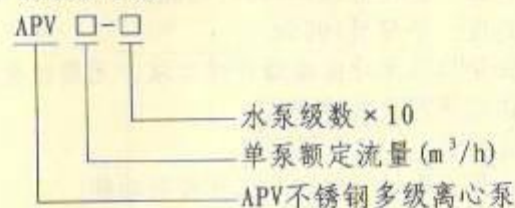 APV □-□
水泵级数×10
单泵额定流量(m³/h)
APV不锈钢多级离心泵